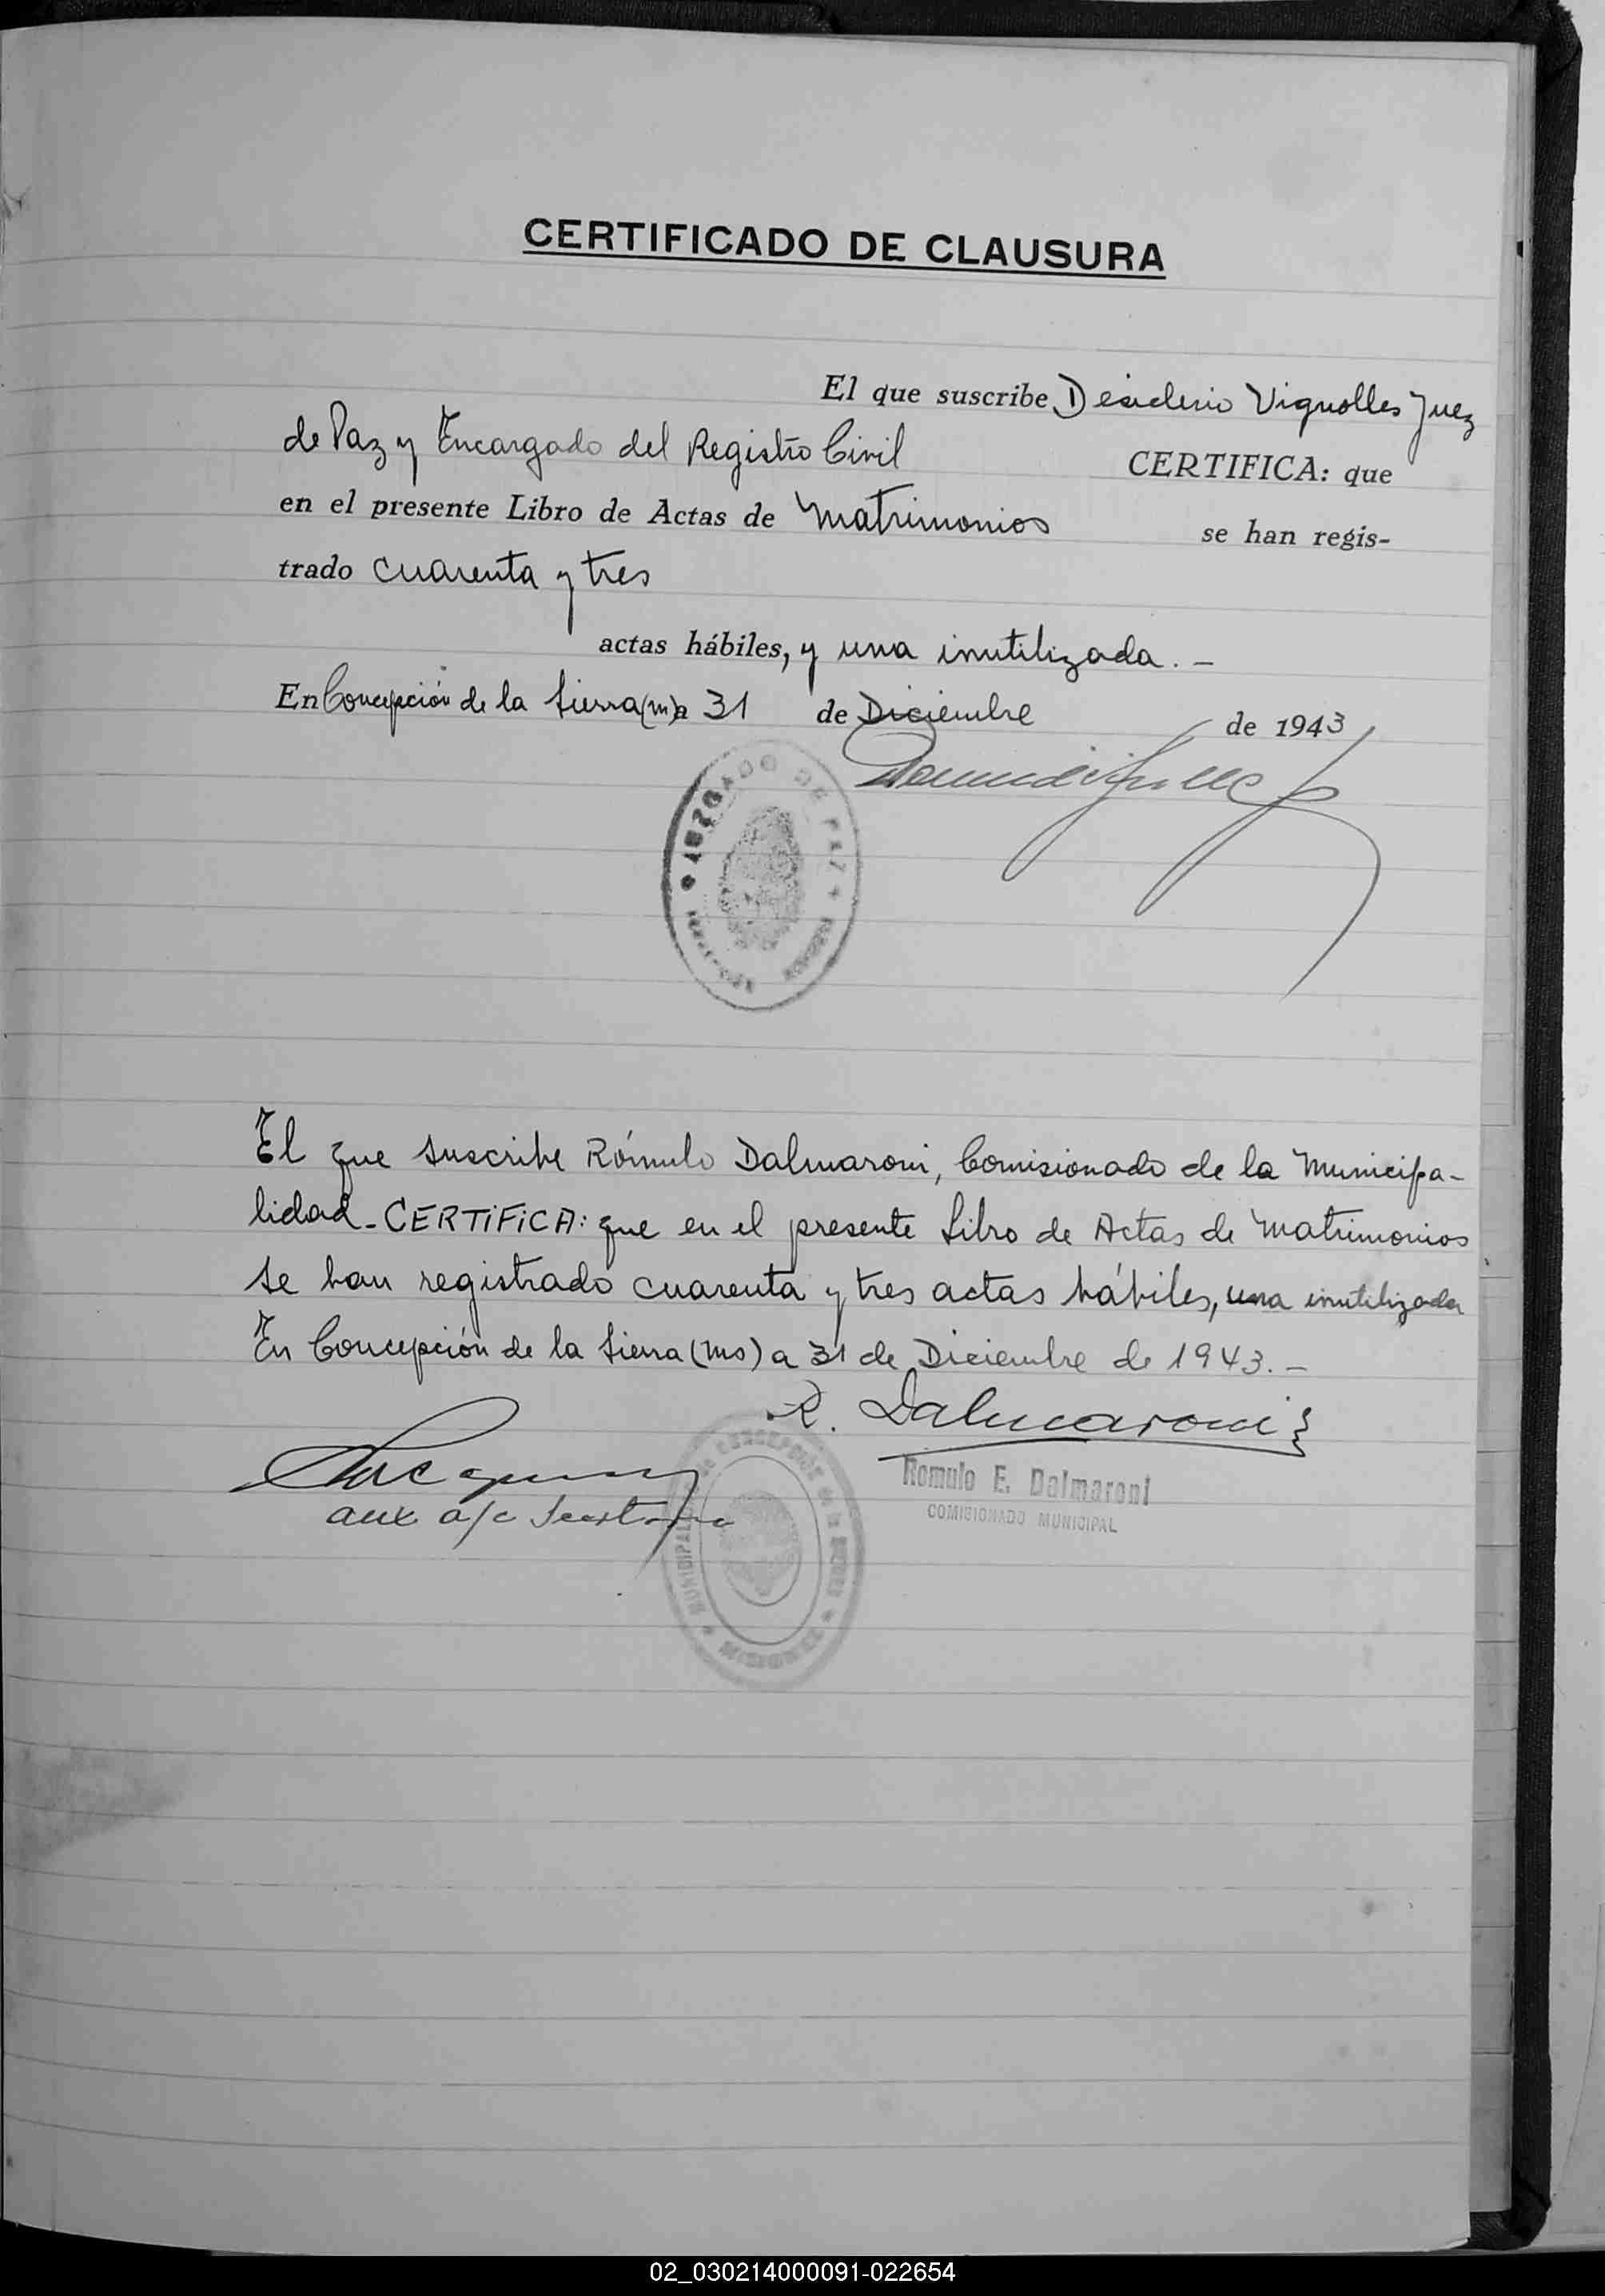 CERTIFICADO DE CLAUSURA
El que suscribe Desiderio Vignolles Juez
de Paz y Encargado del Registro Civil CERTIFICA: que
en el presente Libro de Actas de Matrimonios se han regis-
trado cuarenta y tres
actas hábiles, y una inutilizada. -
En Concepción de la Sierra (m) a 31 de Diciembre de 1943
JUZGADO DE PAZ
El que suscribe Rómulo Dalmaroni, Comisionado de la Municipa-
lidad - CERTIFICA: que en el presente Libro de Actas de Matrimonios
se han registrado cuarenta y tres actas hábiles, una inutilizada
En Concepción de la Sierra (Ms) a 31 de Diciembre de 1943. -
R. Dalmaroni
Romulo E. Dalmaroni
COMISIONADO MUNICIPAL
aux a/c
MUNICIPALIDAD de CONCEPCIÓN de la SIERRA
MISIONES
02_030214000091-022654